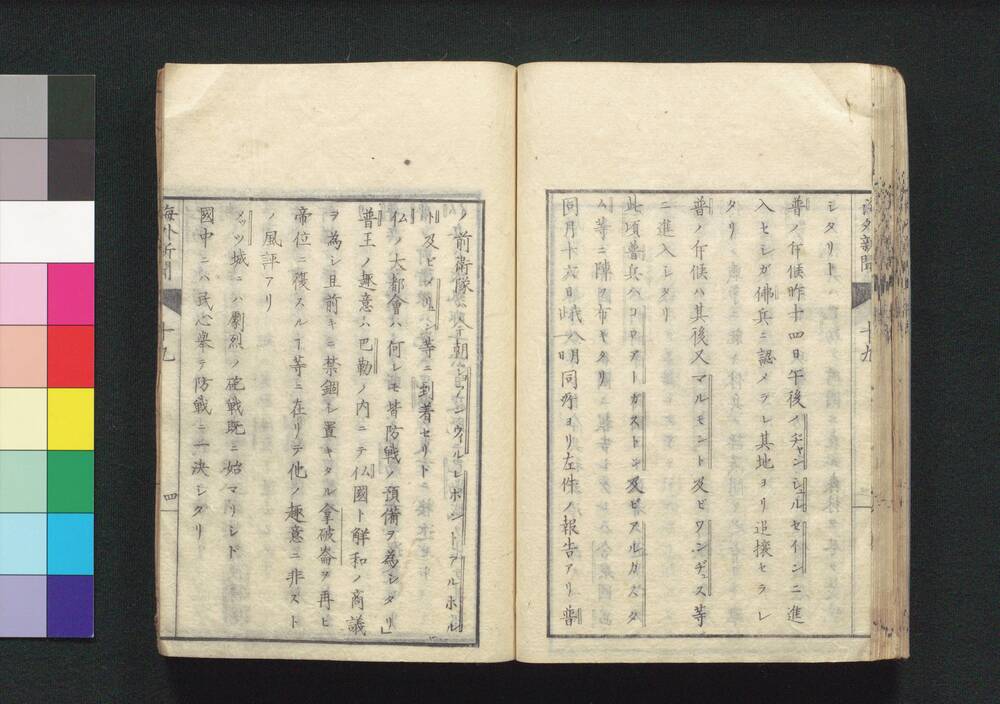 シタリト
普ノ斥候昨十四日午後ノチャンジュルセインニ進
入セシガ佛兵ニ認メラレ其地ヨリ追攘セラレ
タリ
普ノ斥候ハ其後又マルモント及ビワンヂュス等
ニ進入シタリ
此項普兵ハコロアートガストン及ビアルガスタ
ム等ニ陣ヲ布キタリ
同月十六日此八月一日同所ヨリ左件ノ報告アリ普
海外新聞 十九
ノ前衛隊ハ今朝シアンウィルレポントアルホル
ト及ビ等ニ到着セリト
仏ノ大都會ハ何レモ皆防戦ノ預備ヲ為シタリ」
普王ノ趣意ハ巴勒ノ内ニテ仏國ト解和ノ商議
ヲ為シ且前キニ禁錮シ置キタル拿破崙ヲ再ビ
帝位ニ復スルヿ等ニ在リテ他ノ趣意ニ非スト
ノ風評アリ
メッツ城ニハ劇烈ノ砲戦既ニ始マリシト
國中ニハ民心挙テ防戦ニ一決シタリ
海外新聞 十九 四